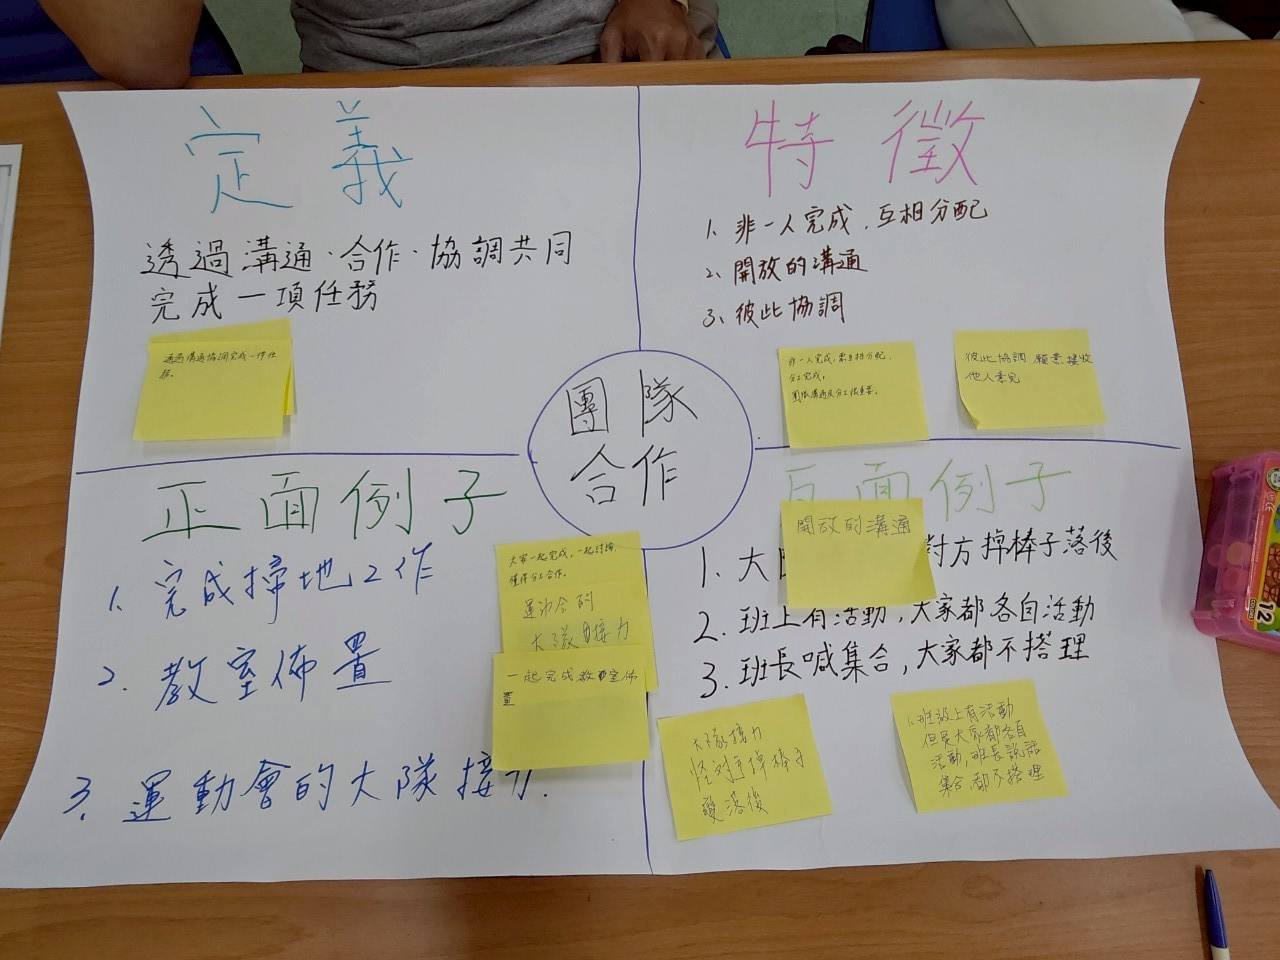 定義
透過溝通、合作、協調共同
完成一項任務
透過溝通協調完成一件任
務。
特徵
1. 非一人完成，互相分配
2. 開放的溝通
3. 彼此協調
非一人完成，需互相分配，
分工完成，
團隊溝通及分工很重要。
彼此協調，願意接收
他人意見
團隊
合作
正面例子
1. 完成掃地工作
2. 教室佈置
3. 運動會的大隊接力.
大家一起完成，一起討論，
懂得分工合作。
運動會的
大隊接力
一起完成教室佈
置
反面例子
開放的溝通
1. 大 對方掉棒子落後
2. 班上有活動，大家都各自活動
3. 班長喊集合，大家都不搭理
大隊接力
怪對手掉棒子
落後
1. 班級上有活動
但是大家都各自
活動，班長說話
集合，都不搭理
12